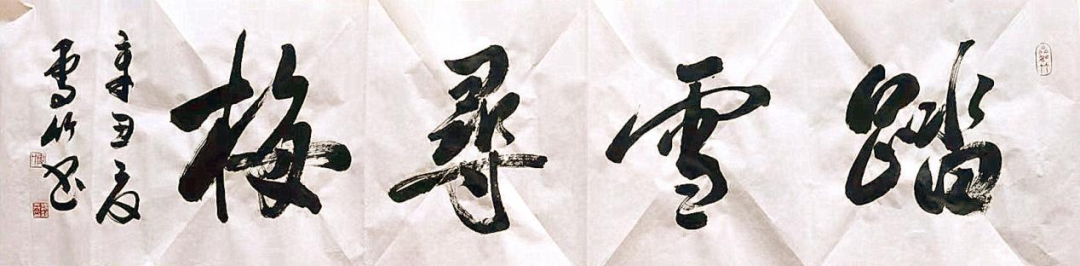 踏雪尋梅
辛丑夏
雪竹书